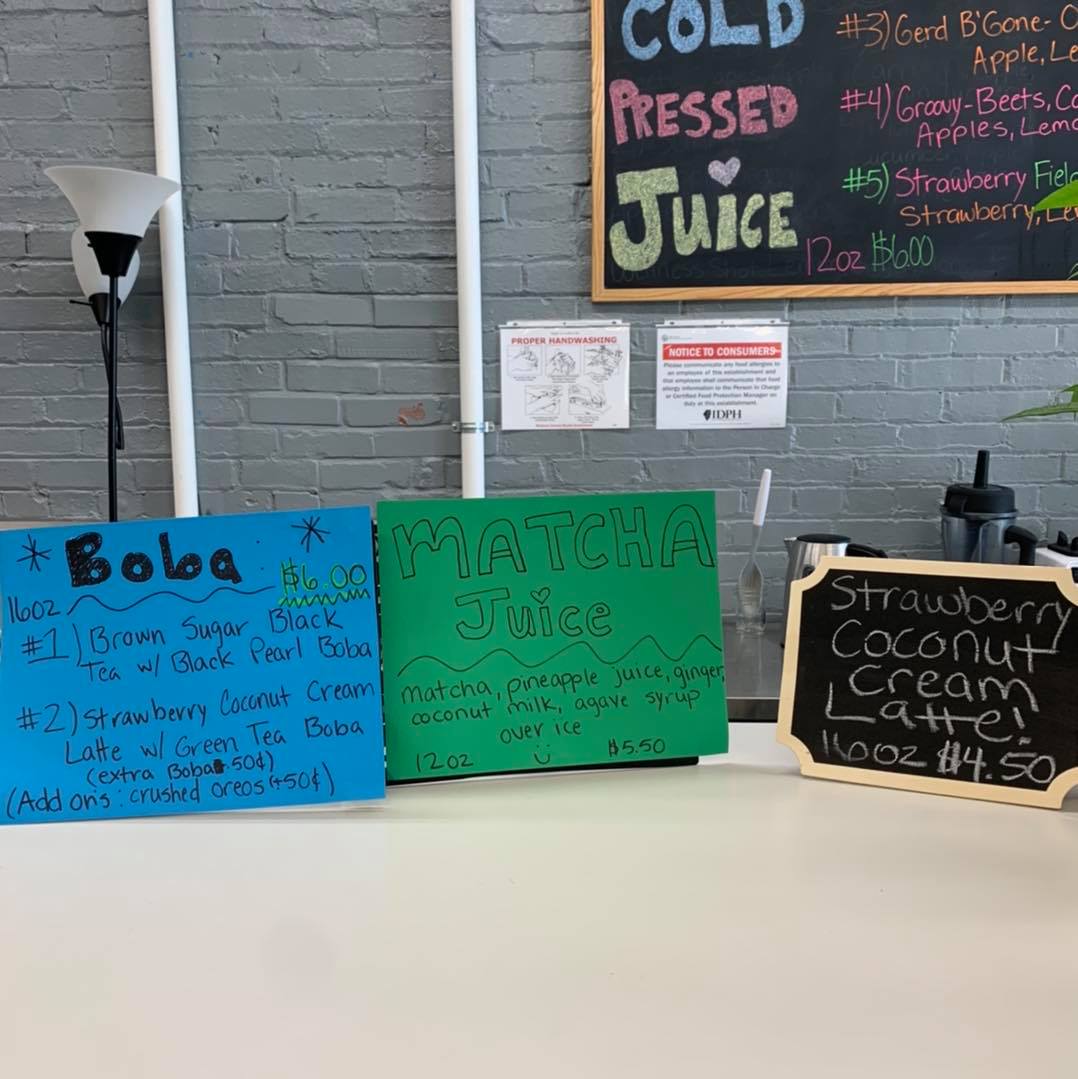 COLD
PRESSED
JUICE
#3) Gerd B'Gone-
Apple,
#4) Groovy-Beets,
Apples,
#5) Strawberry
Strawberry,
12oz $6.00
PROPER HANDWASHING
NOTICE TO CONSUMERS
Please communicate any food allergies to
an employee of this establishment and
that employee shall communicate that food
allergy information to the Person In Charge
or Certified Food Protection Manager on
duty at this establishment.
IDPH
Boba
$6.00
16oz
#1) Brown Sugar Black
Tea w/ Black Pearl Boba
#2) Strawberry Coconut Cream
Latte w/ Green Tea Boba
(extra Boba + 50¢)
(Add ons: crushed oreos (+50¢)
MATCHA
Juice
matcha, pineapple juice, ginger,
coconut milk, agave syrup
over ice
12oz $5.50
Strawberry
Coconut
Cream
Latte!
16oz $4.50